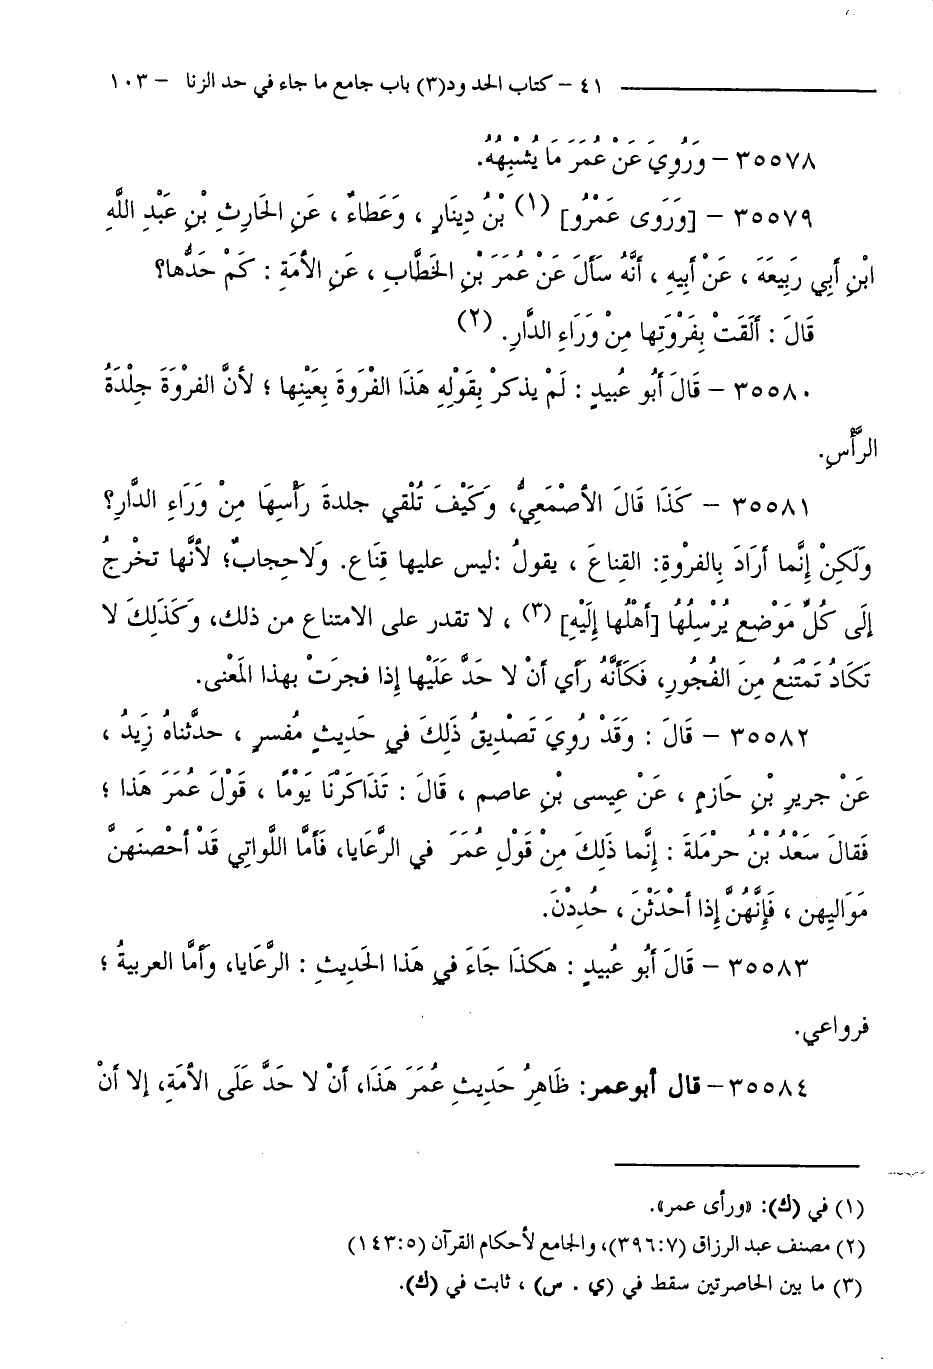 ٤١ – كتاب الحدود(٣) باب جامع ما جاء في حد الزنا – ١٠٣
٣٥٥٧٨ – وَرُوِيَ عَنْ عُمَرَ مَا يُشْبِهُهُ.
٣٥٥٧٩ – [وَرَوَى عَمْرُو] (١) بْنُ دِينَارٍ ، وَعَطَاءٌ ، عَنِ الحَارِثِ بْنِ عَبْدِ اللَّهِ
ابْنِ أَبِي رَبِيعَةَ ، عَنْ أَبِيهِ ، أَنَّهُ سَأَلَ عَنْ عُمَرَ بْنِ الخَطَّابِ ، عَنِ الأَمَةِ : كَمْ حَدُّها؟
قَالَ : أَلَقَتْ بِفَرْوَتِها مِنْ وَرَاءِ الدَّارِ. (٢)
٣٥٥٨٠ – قَالَ أَبُو عُبيدٍ : لَمْ يذكرْ بِقَوْلِهِ هَذَا الفَرْوَةَ بِعَيْنِها ؛ لأنَّ الفرْوَةَ جِلْدَةُ
الرَّأْسِ.
٣٥٥٨١ – كَذَا قَالَ الأصْمَعِيُّ، وَكَيْفَ تُلْقي جلدةَ رَأْسِهَا مِنْ وَرَاءِ الدَّارِ؟
وَلَكِنْ إِنَّما أرَادَ بِالفرْوةِ: القِناعَ ، يقولُ :ليس عليها قِنَاع. وَلاحِجابٌ؛ لأنَّها تخْرجُ
إلَى كُلِّ مَوْضعٍ يُرْسِلُهَا [أهْلُها إلَيْهِ] (٣) ، لا تقدر على الامتناع من ذلك، وَكَذَلِكَ لا
تَكَادُ تَمْتَنعُ مِنَ الفُجُورِ، فَكَأَنَّهُ رَأي أنْ لا حَدَّ عَلَيْها إذا فجرَتْ بهذا المَعْنى.
٣٥٥٨٢ – قَالَ : وَقَدْ رُوِيَ تَصْديقُ ذَلِكَ في حَدِيثٍ مُفسرٍ ، حدَّثناهُ زَيدُ ،
عَنْ جريرِ بْنِ حَازمٍ ، عَنْ عِيسى بْنِ عاصم ، قَالَ : تَذَاكَرْنَا يَوْمًا ، قَوْلَ عُمَرَ هَذا ؛
فَقالَ سَعْدُ بْنُ حرمْلةَ : إنَّما ذَلِكَ مِنْ قَوْلِ عُمَرَ في الرَّعايا، فَأمَّا اللَّواتِي قَدْ أحْصنَهنَّ
مَوَاليهن ، فَإِنَّهُنَّ إذا أحْدَثْنَ ، حُدِدْنَ.
٣٥٥٨٣ – قَالَ أَبُو عُبيدٍ : هَكذَا جَاءَ في هَذا الحَديثِ : الرَّعَايا، وأمَّا العربيةُ ؛
فرواعي.
٣٥٥٨٤– قال أبوعمر: ظَاهِرُ حَدِيثِ عُمَرَ هَذَا، أنْ لا حَدَّ عَلَى الأمَةِ، إلا أنْ
(١) في (ك): «ورأى عمر».
(٢) مصنف عبد الرزاق (٣٩٦:٧)، والجامع لأحكام القرآن (١٤٣:٥)
(٣) ما بين الحاصرتين سقط في (ي . س) ، ثابت في (ك).